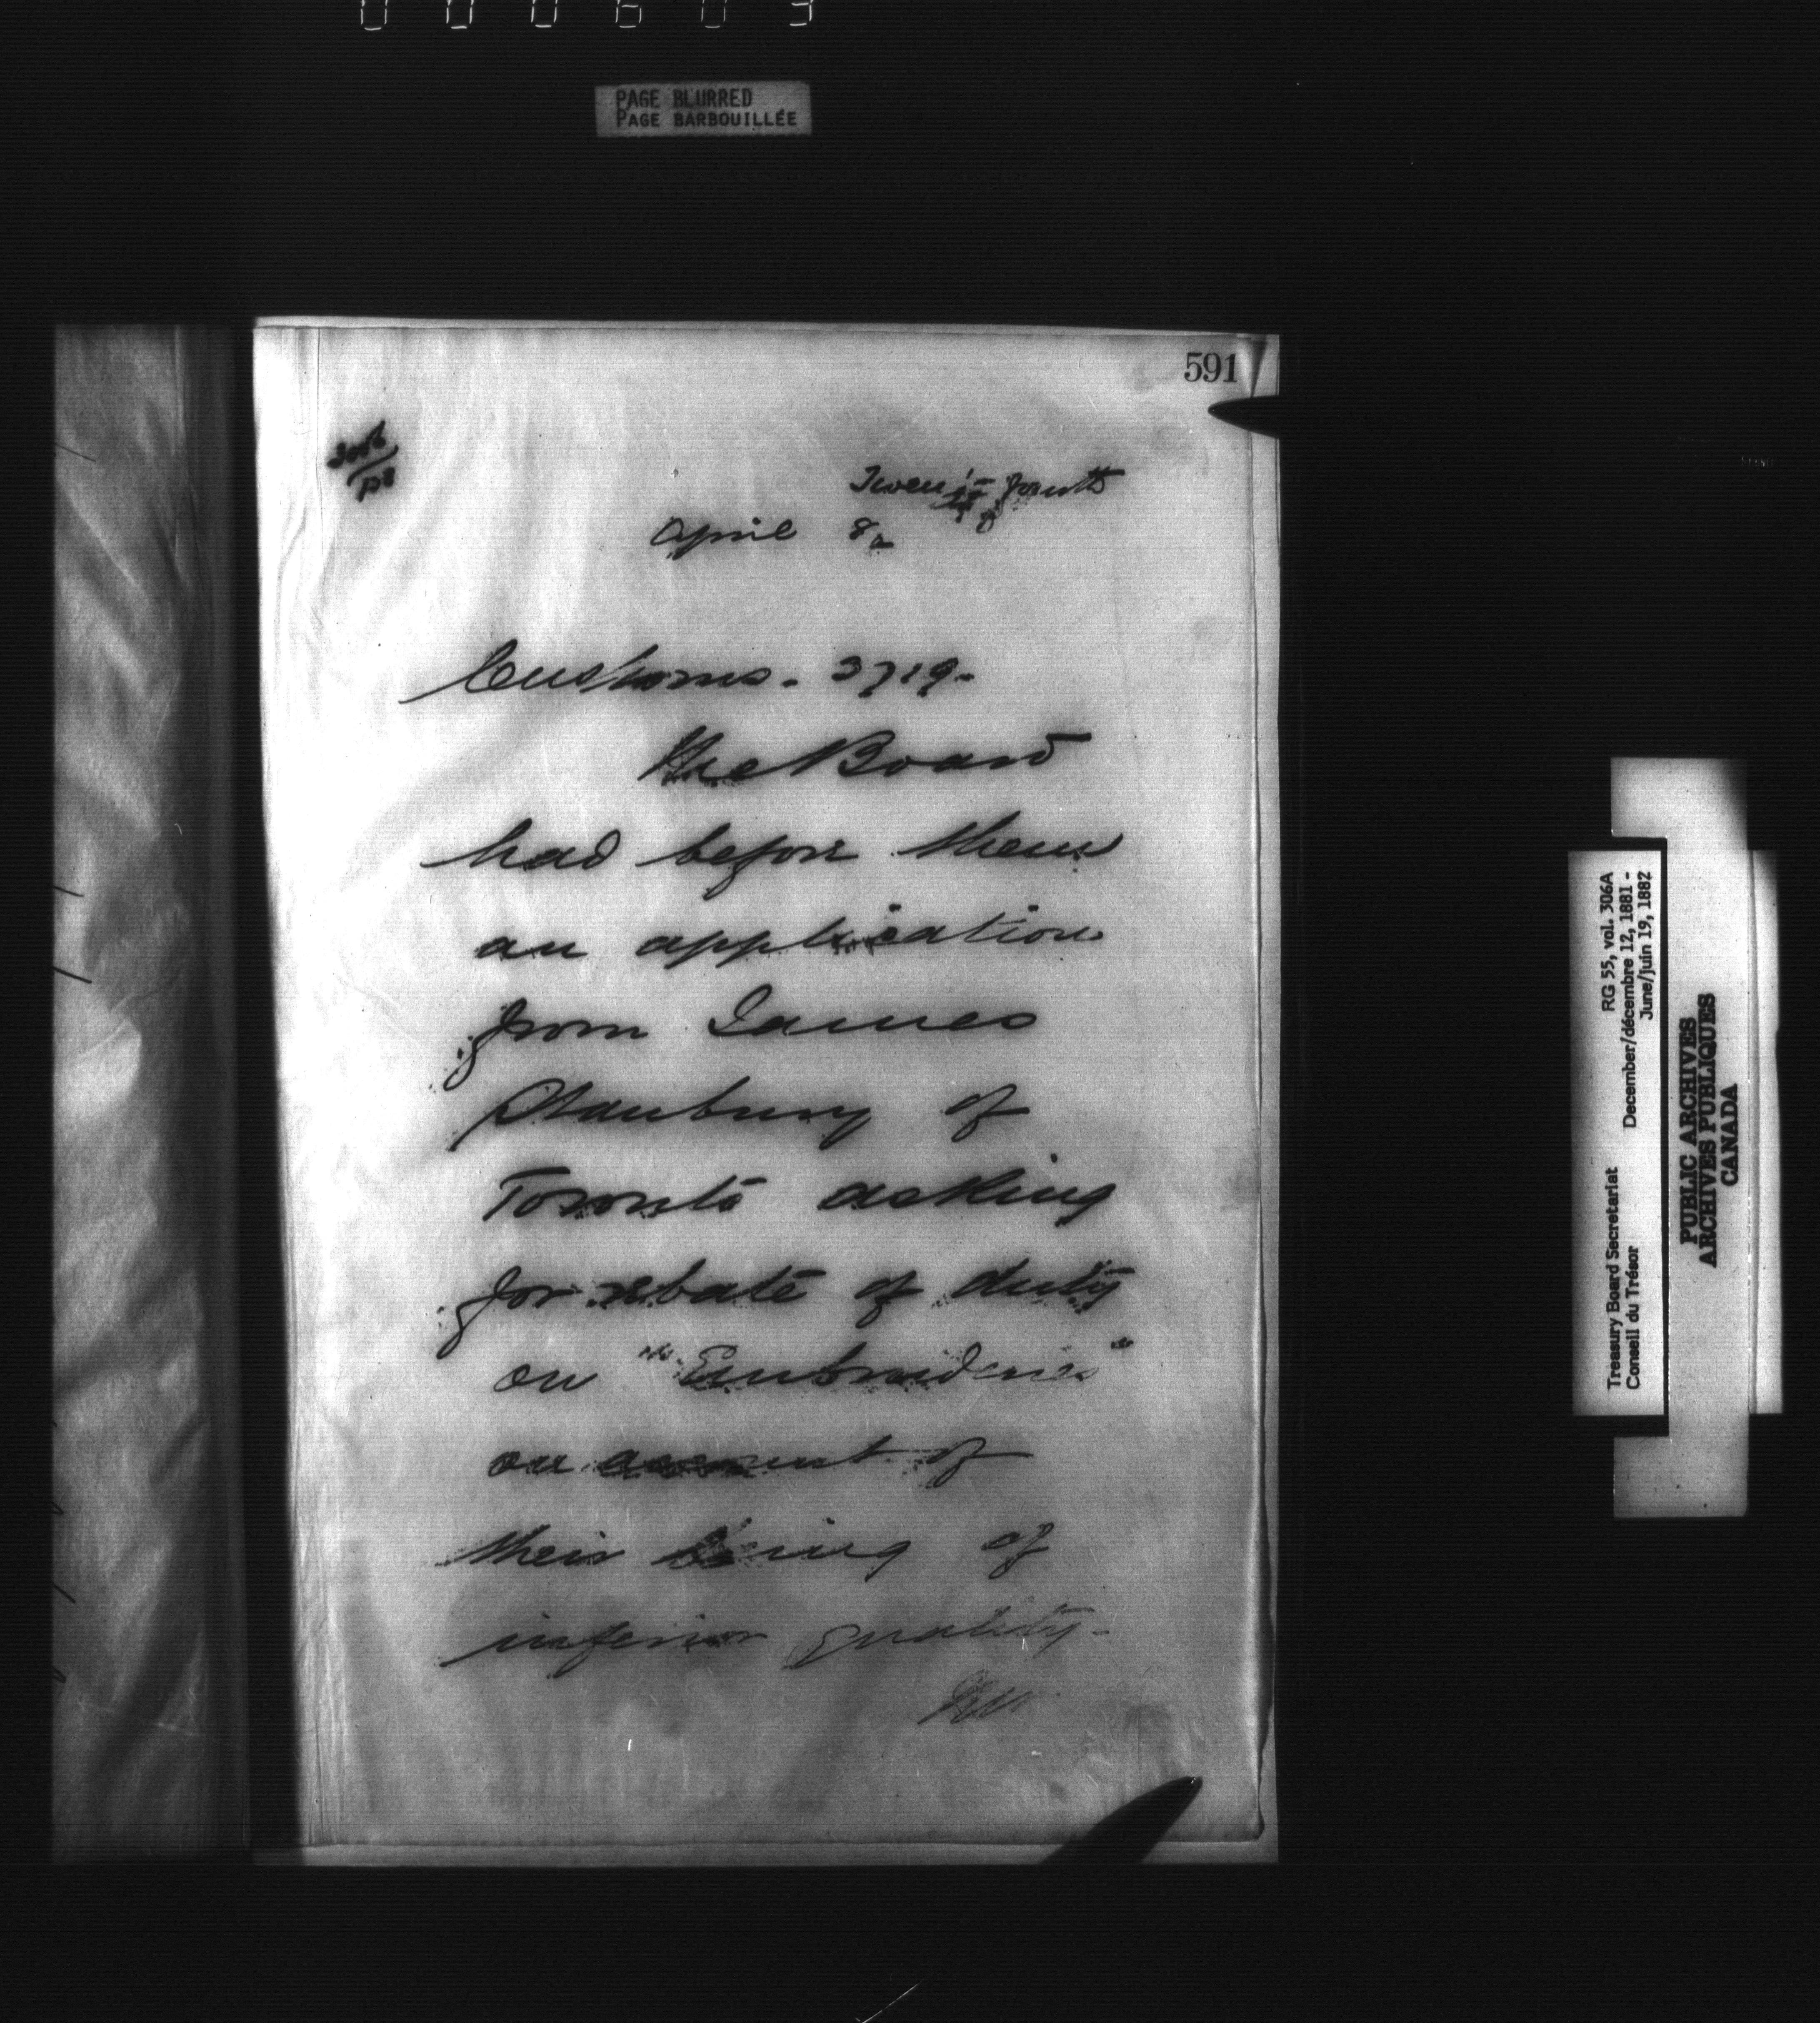 PAGE BLURRED
PAGE BARBOUILLÉE
591
Twenty fourth
April 82
Customs. 3719.
The Board
had before them
an application
from James
Stanbury of
Toronto asking
for rebate of duty
on "Embroideries"
on account of
their being of
inferior quality.
Treasury Board Secretariat RG 55, vol. 306A
Conseil du Trésor December/décembre 12, 1881 -
June/juin 19, 1882
PUBLIC ARCHIVES
ARCHIVES PUBLIQUES
CANADA